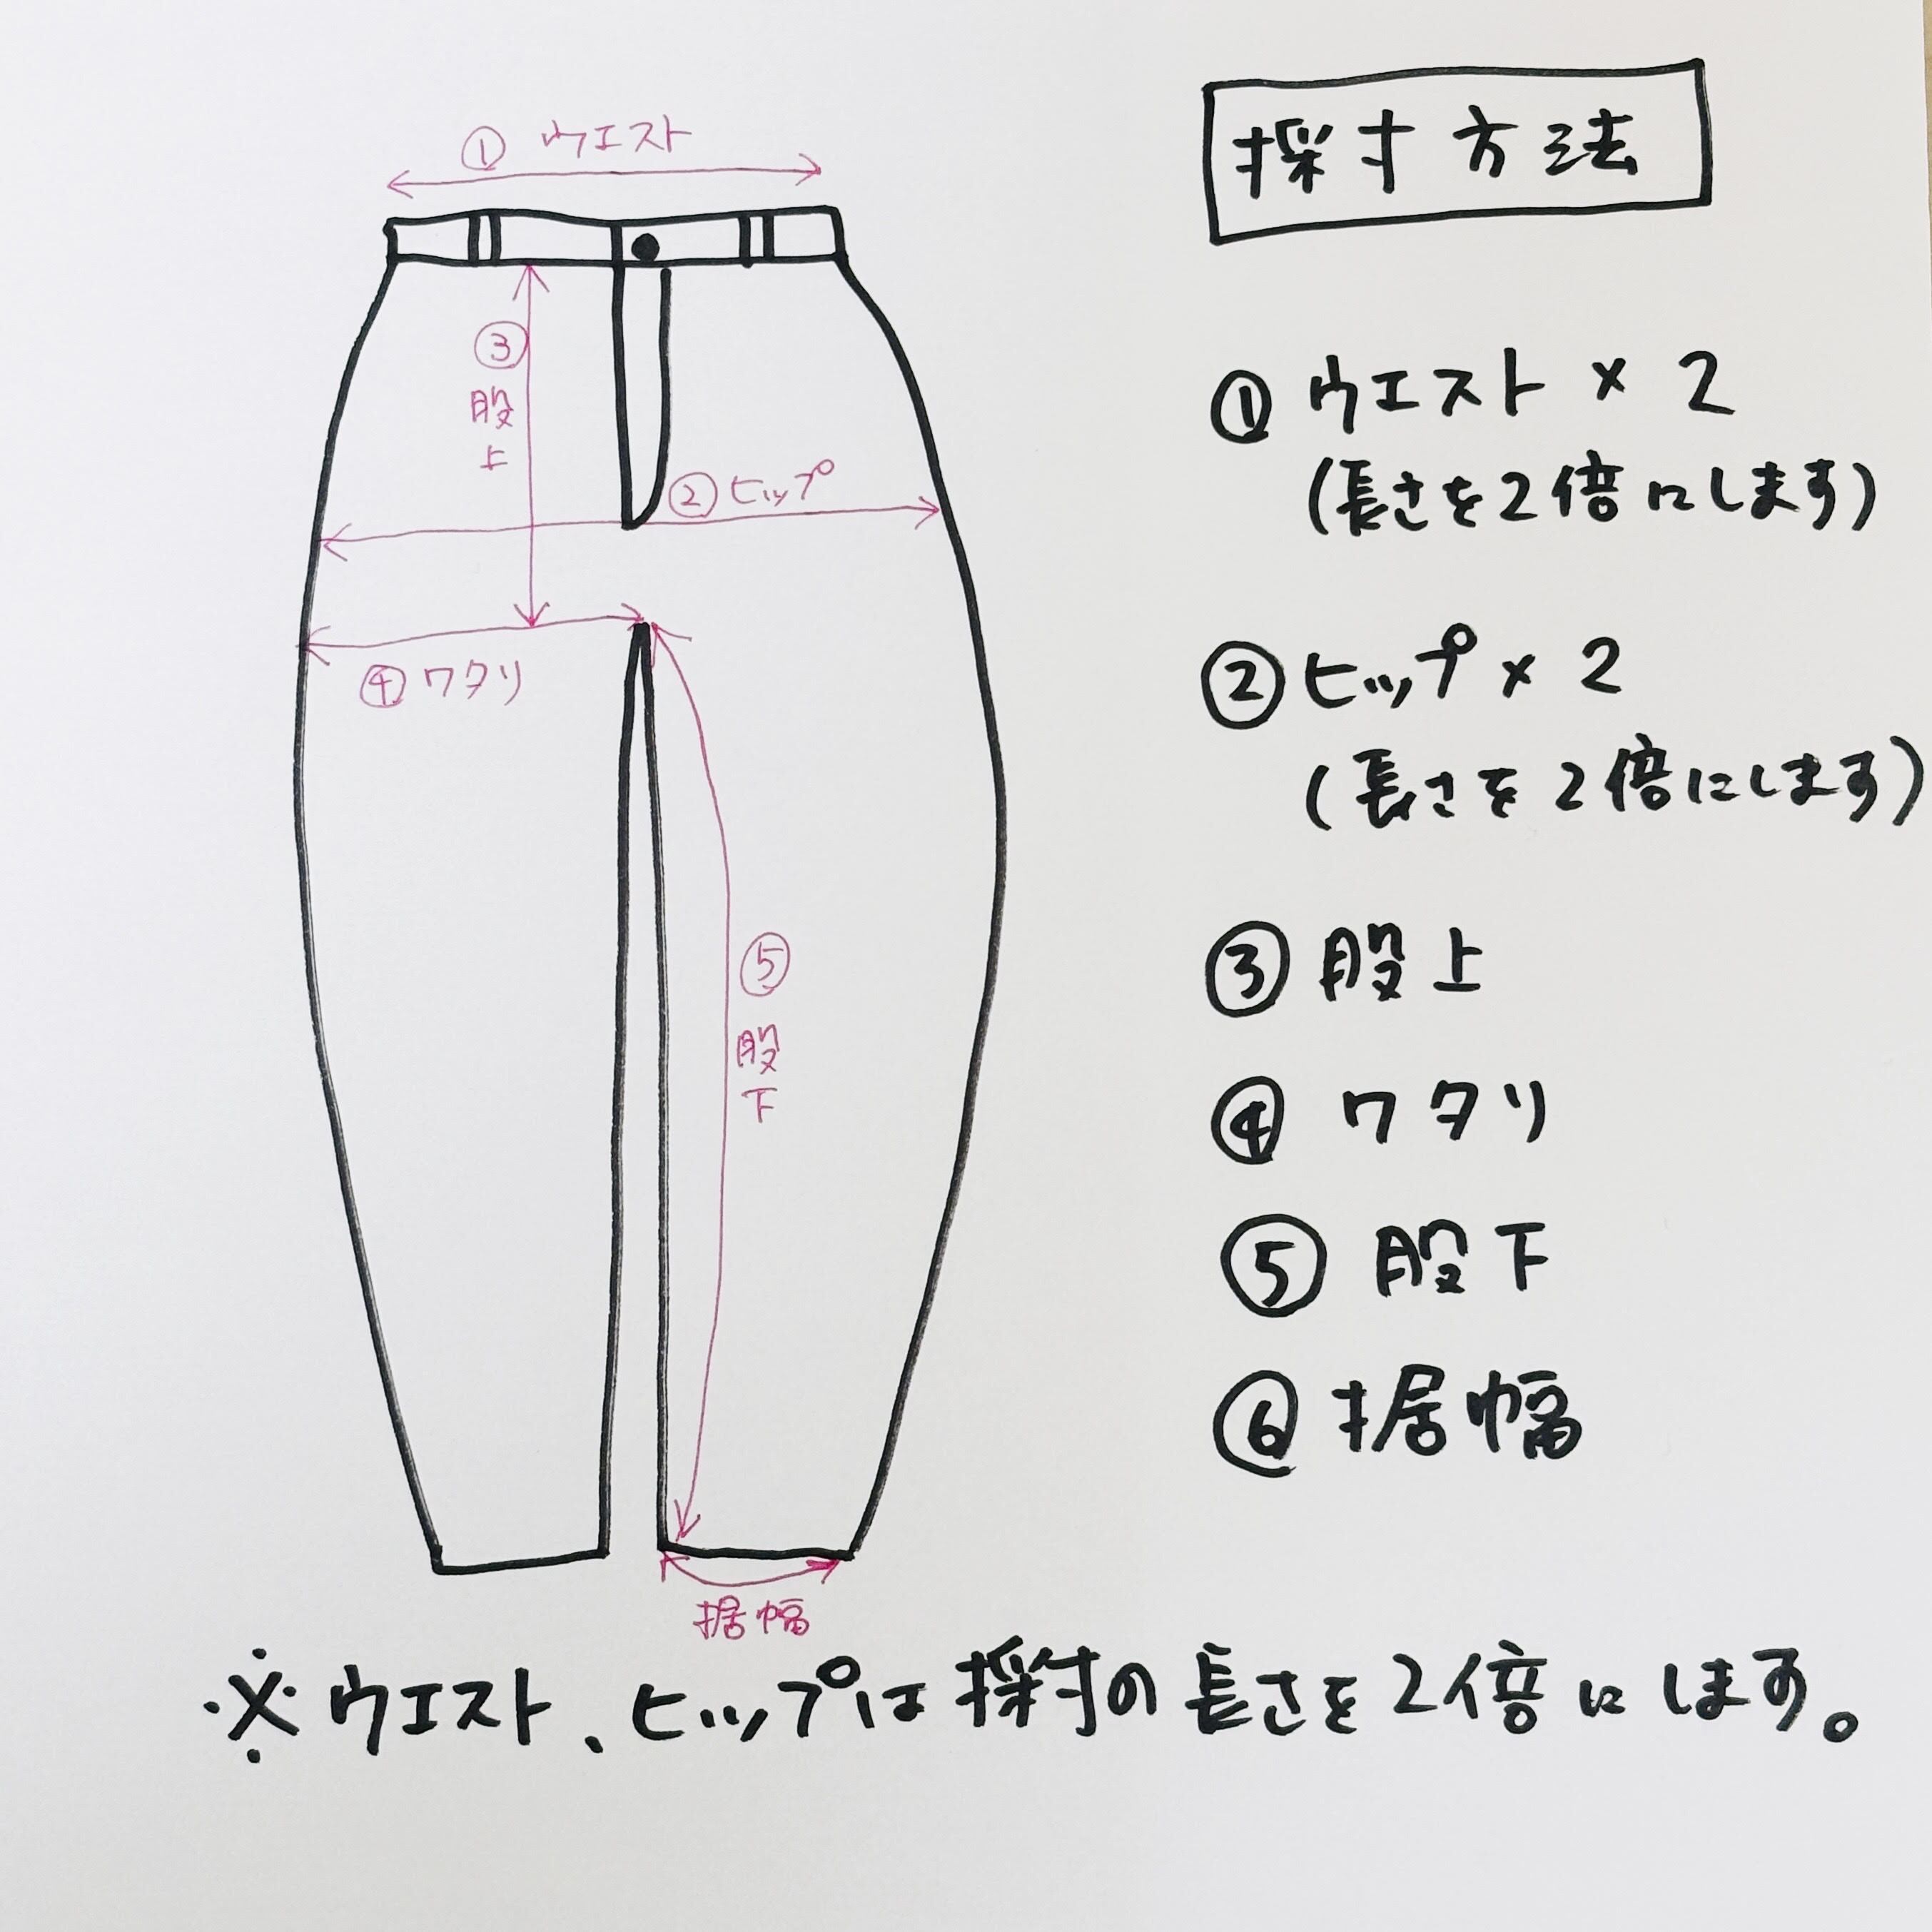 採寸方法
① ウエスト
③ 股上
② ヒップ
④ ワタリ
⑤ 股下
据幅
① ウエスト × 2
(長さを2倍にします)
② ヒップ × 2
(長さを2倍にします)
③ 股上
④ ワタリ
⑤ 股下
⑥ 据幅
※ ウエスト、ヒップは採寸の長さを2倍にします。